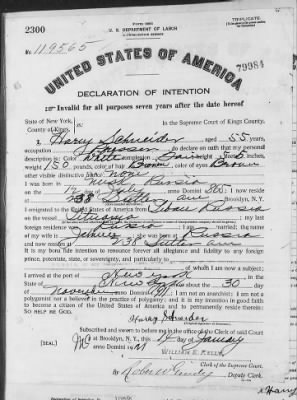 2300
U. S. DEPARTMENT OF LABOR
TRIPLICATE
No. 119565
79984
UNITED STATES OF AMERICA
DECLARATION OF INTENTION
Invalid for all purposes seven years after the date hereof
State of New York,
County of Kings,
In the Supreme Court of Kings County.
I, Harry Schneider, aged 55 years,
occupation, do declare on oath that my personal
description is: Color White, complexion Fair, height inches,
weight 150 pounds, color of hair Brown, color of eyes Brown
other visible distinctive marks none
I was born in Minsk Russia
on the day of July, anno Domini; I now reside
at 238 Sutter ave, Brooklyn, N. Y.
I emigrated to the United States of America from Libau Russia
on the vessel; my last
foreign residence was Russia; I am married; the name
of my wife is; she was born at Russia
and now resides at 238 Sutter ave
It is my bona fide intention to renounce forever all allegiance and fidelity to any foreign
prince, potentate, state, or sovereignty, and particularly to
of whom I am now a subject;
I arrived at the port of New York, in the
State of New York, on or about the 30 day
of November, anno Domini; I am not an anarchist; I am not a
polygamist nor a believer in the practice of polygamy; and it is my intention in good faith
to become a citizen of the United States of America and to permanently reside therein:
SO HELP ME GOD.
Harry Schneider
Subscribed and sworn to before me in the office of the Clerk of said Court
[SEAL] at Brooklyn, N. Y., this day of January
anno Domini
WILLIAM E. KELLY
Clerk of the Supreme Court.
By, Deputy Clerk.
x Harry